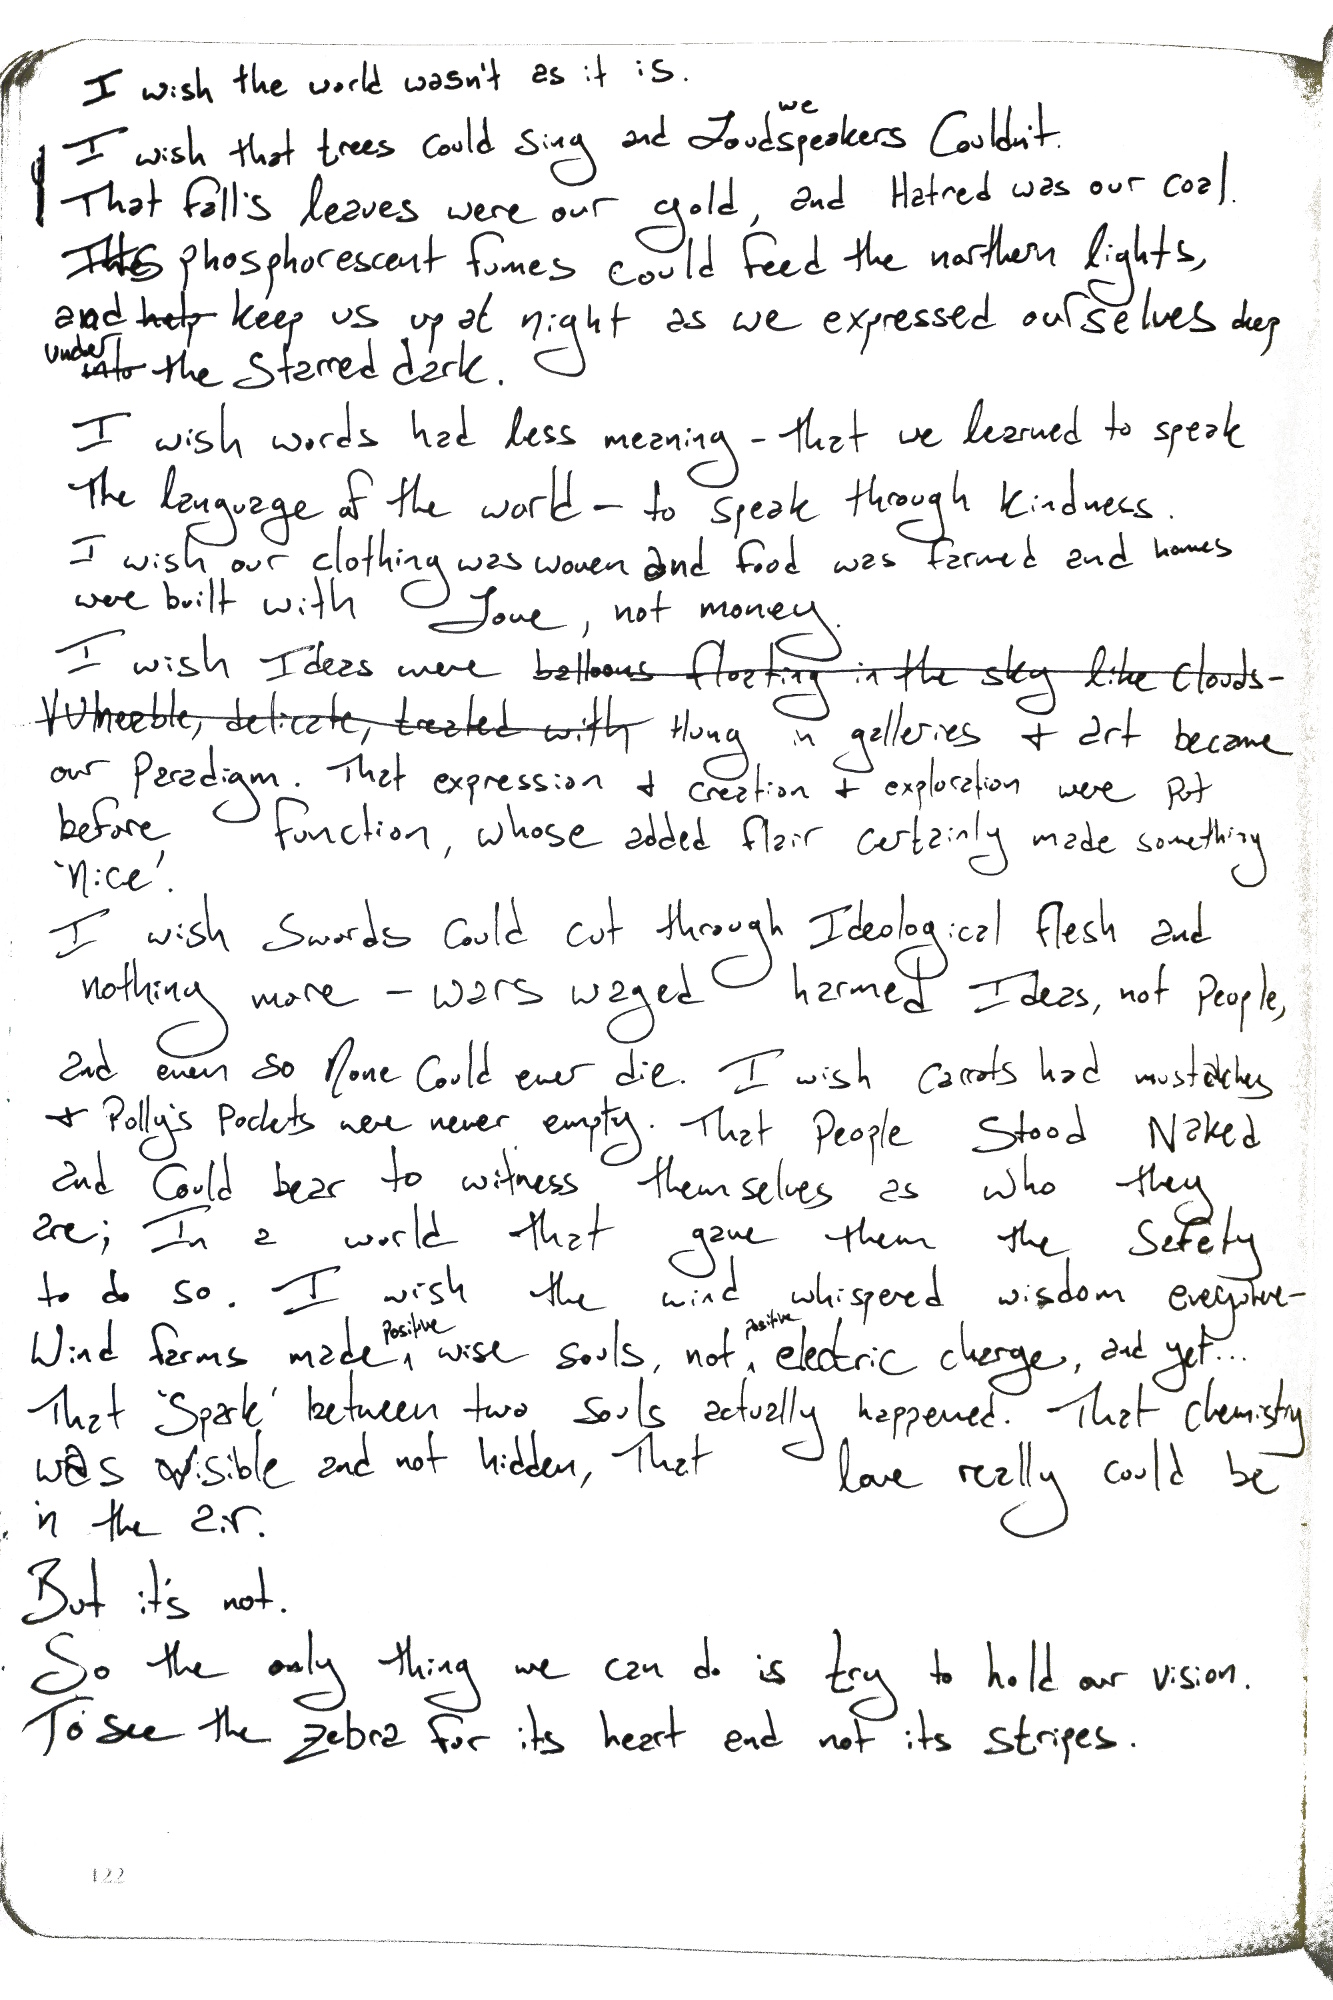 I wish the world wasn't as it is.
I wish that trees could sing and we Loudspeakers Couldn't.
That fall's leaves were our gold, and Hatred was our coal.
Its phosphorescent fumes could feed the northern lights,
and help keep us up at night as we expressed ourselves deep
under into the Starred dark.
I wish words had less meaning - that we learned to speak
The language of the world - to speak through kindness.
I wish our clothing was woven and food was farmed and homes
were built with Love, not money.
I wish Ideas were balloons floating in the sky like clouds -
Vulnerable, delicate, treated with Hung in galleries + art became
our Paradigm. That expression + creation + exploration were put
before function, whose added flair certainly made something
'nice'.
I wish Swords Could cut through Ideological flesh and
nothing more - wars waged harmed Ideas, not People,
and even so None Could ever die. I wish carrots had mustaches
+ Polly's Pockets were never empty. That People Stood Naked
and Could bear to witness themselves as who they
are; In a world that gave them the Safety
to do so. I wish the wind whispered wisdom everywhere -
Wind farms made positive wise souls, not positive electric charge, and yet...
That 'Spark' between two souls actually happened. That Chemistry
was visible and not hidden, That love really could be
in the air.
But it's not.
So the only thing we can do is try to hold our vision.
To see the zebra for its heart and not its stripes.
122